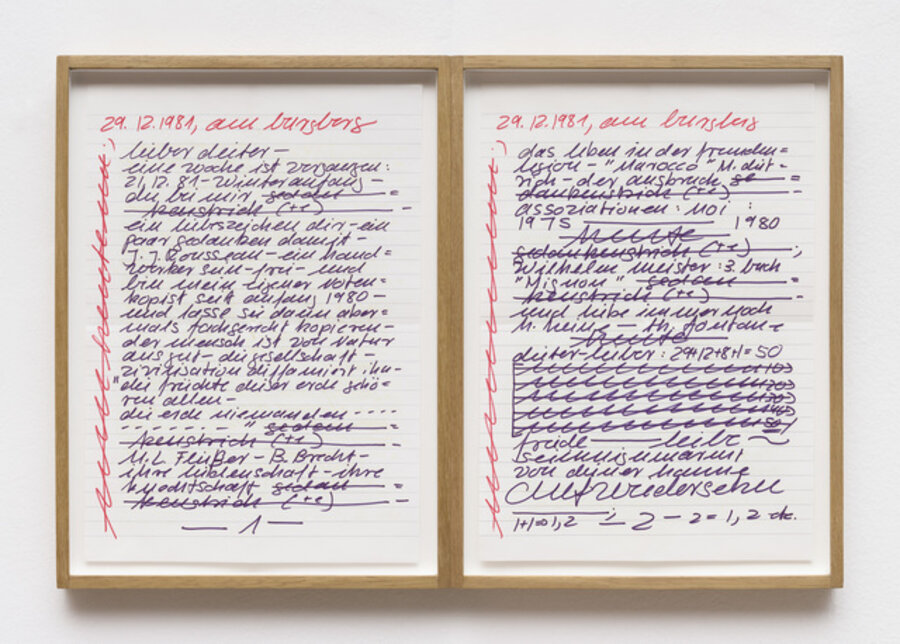 29.12.1981, am burgberg
lieber dieter –
eine woche ist vergangen:
21.12.81 – winteranfang –
du bei mir – gedan =
kenstrich (+e) –
ein liebeszeichen dir – ein
paar gedanken damit –
J. J. Rousseau – ein hand =
werker sein – frei – und
bin mein eigener noten =
kopist seit anfang 1980 –
und lasse sie dann aber =
mals fachgerecht kopieren –
der mensch ist von natur
aus gut – die gesellschaft –
zivilisation diffamiert ihn –
"die früchte dieser erde gehö =
ren allen –
die erde niemanden ----
- - - - - - - " gedan =
kenstrich (+e) –
M. L. Fleißer – B. Brecht –
ihre
knechtschaft – gedan =
kenstrich (+e) –
— 1 —
heute
29.12.1981, am burgberg
das leben in der fremden =
legion – "Marocco" M. diet =
rich – der ausbruch ge =
dankenstrich (+e) –
assoziationen: moi :
1975 — 1980
heute
gedankenstrich (+e) ;
Wilhelm meister: 3. buch
"Mignon" gedan =
kenstrich (+e) –
und liebe immer noch
h. heine – th. fontane
heute
dieter – lieber: 29+12+8+1 = 50
10)
20)
30)
40)
50)
friede — liebe ~
sei innig umarmt
von deiner hanne
Auf Wiedersehn
1+1=1,2 ; — 2 — 2 = 1,2 etc.
heute